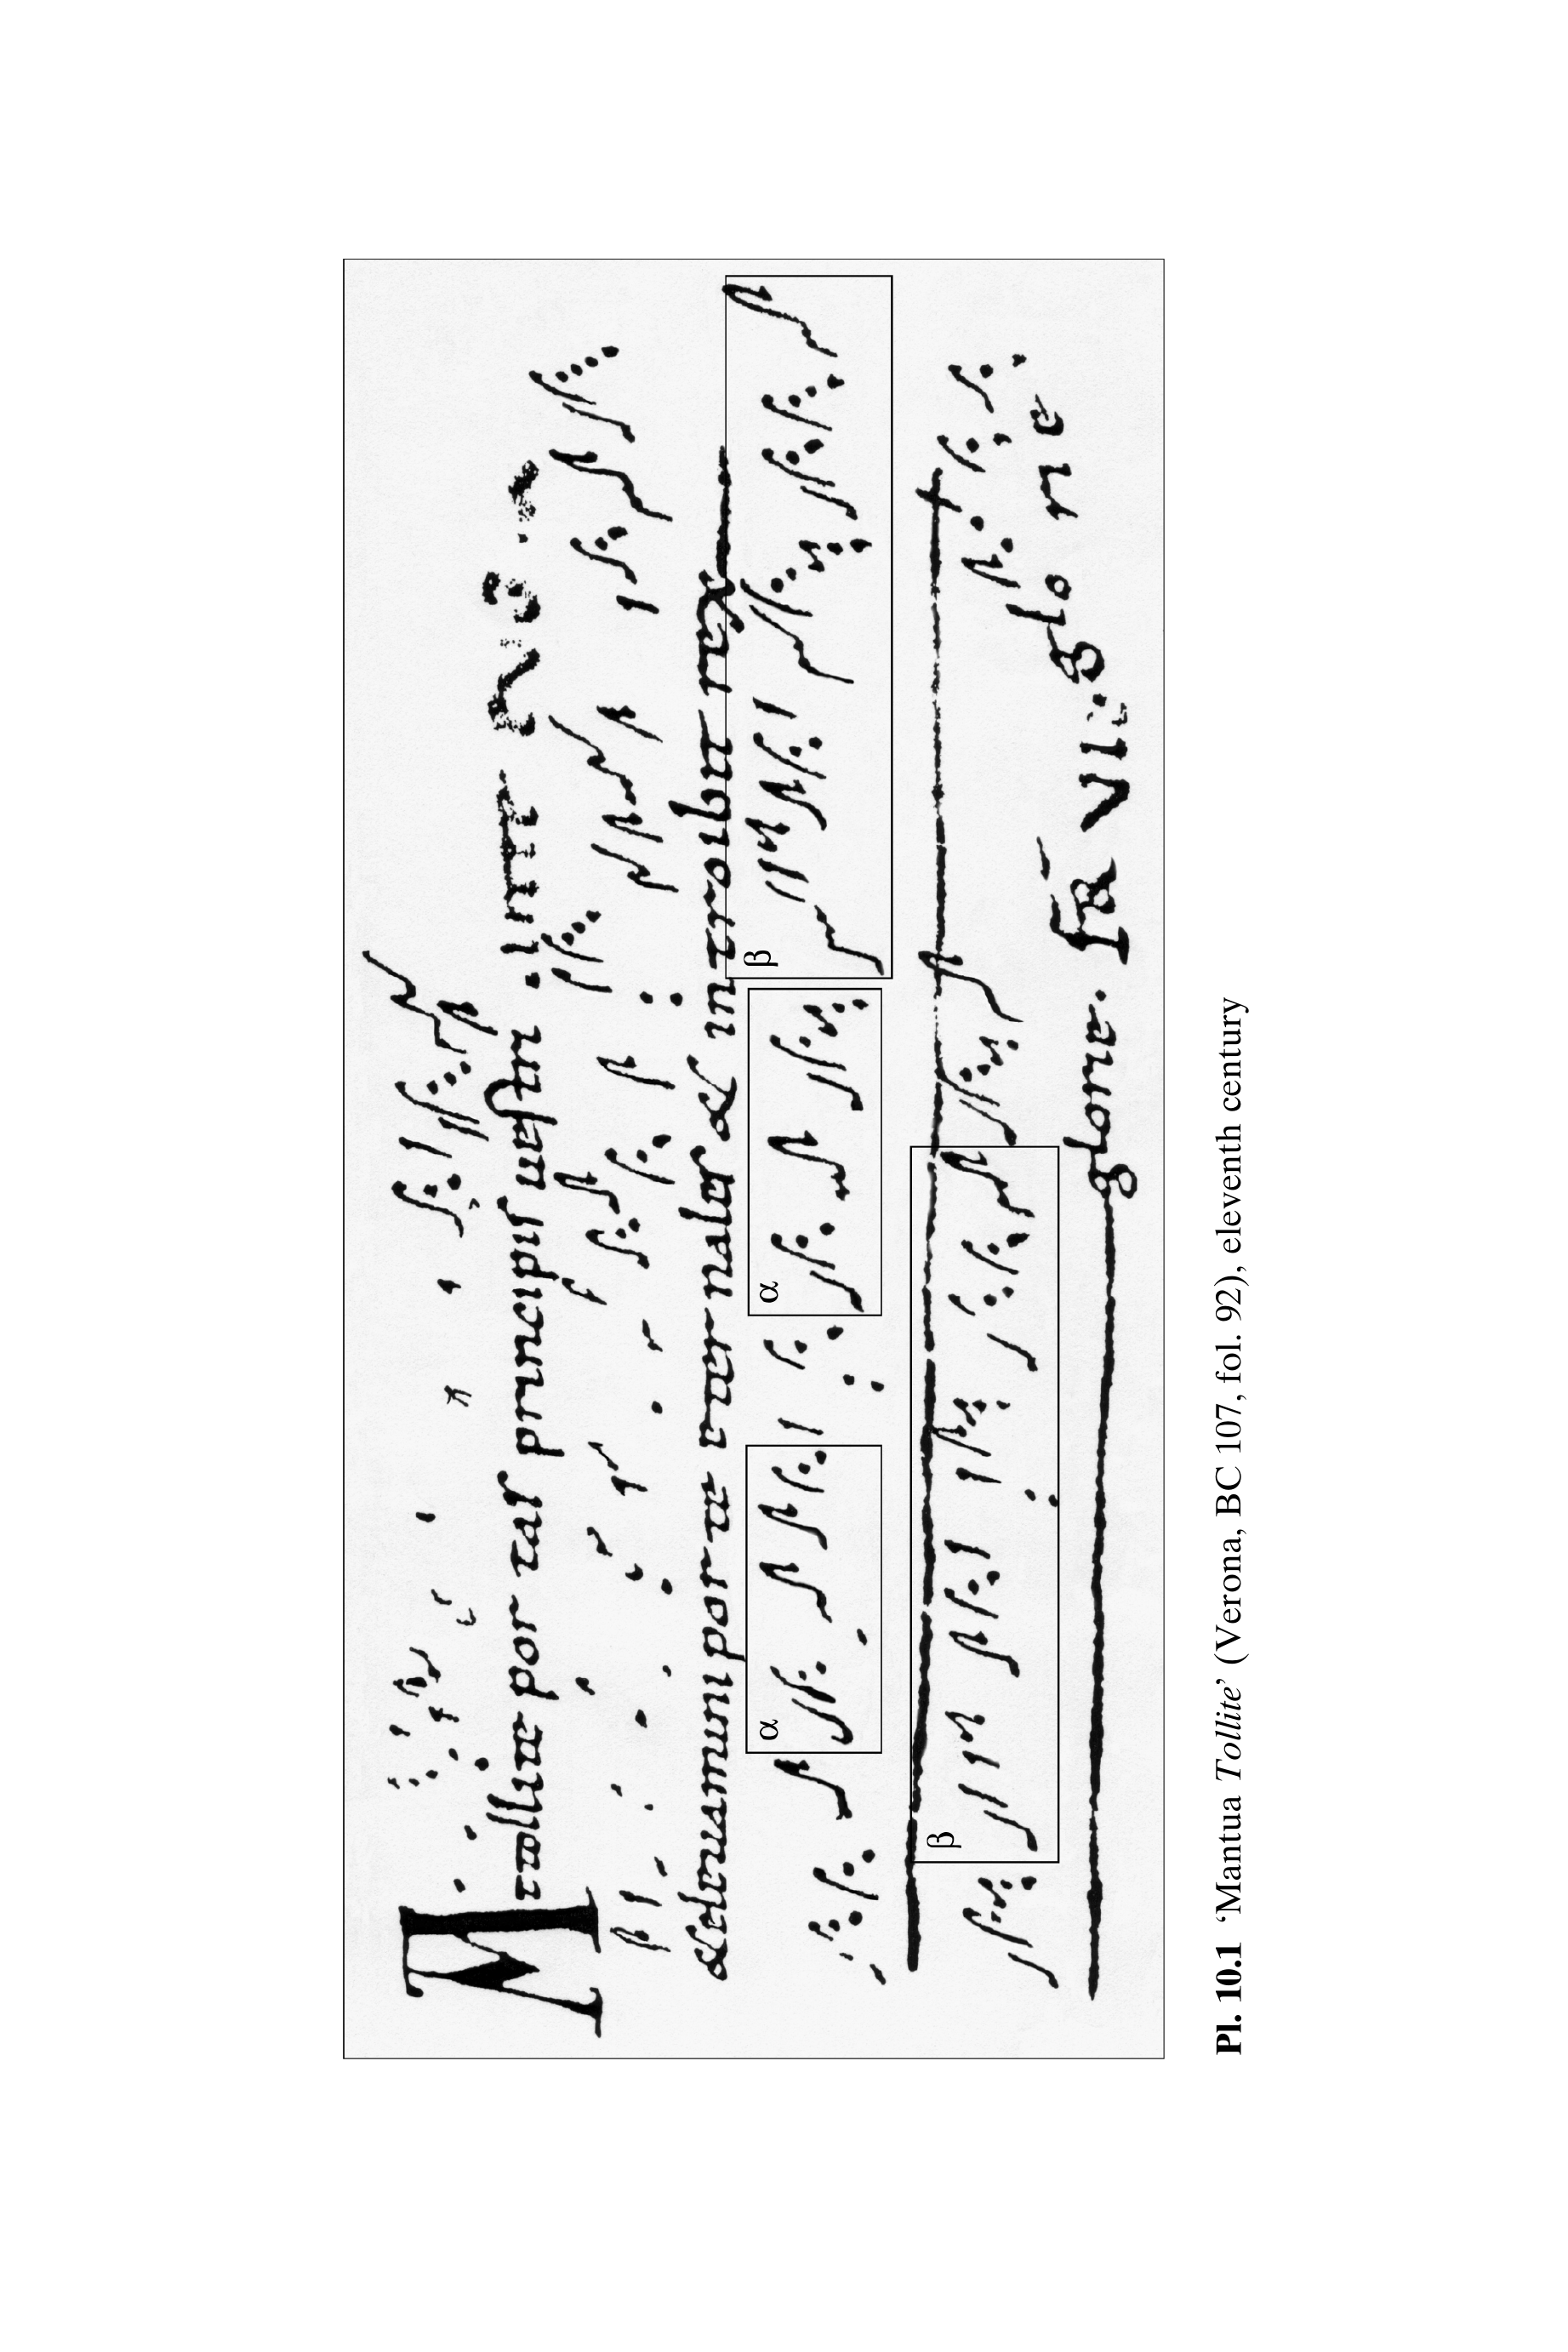 M tollite portas principis uestri .
&eleuamini porte eternales & introibit rex
α α β
β
glorie.
Pl. 10.1 ‘Mantua Tollite’ (Verona, BC 107, fol. 92), eleventh century